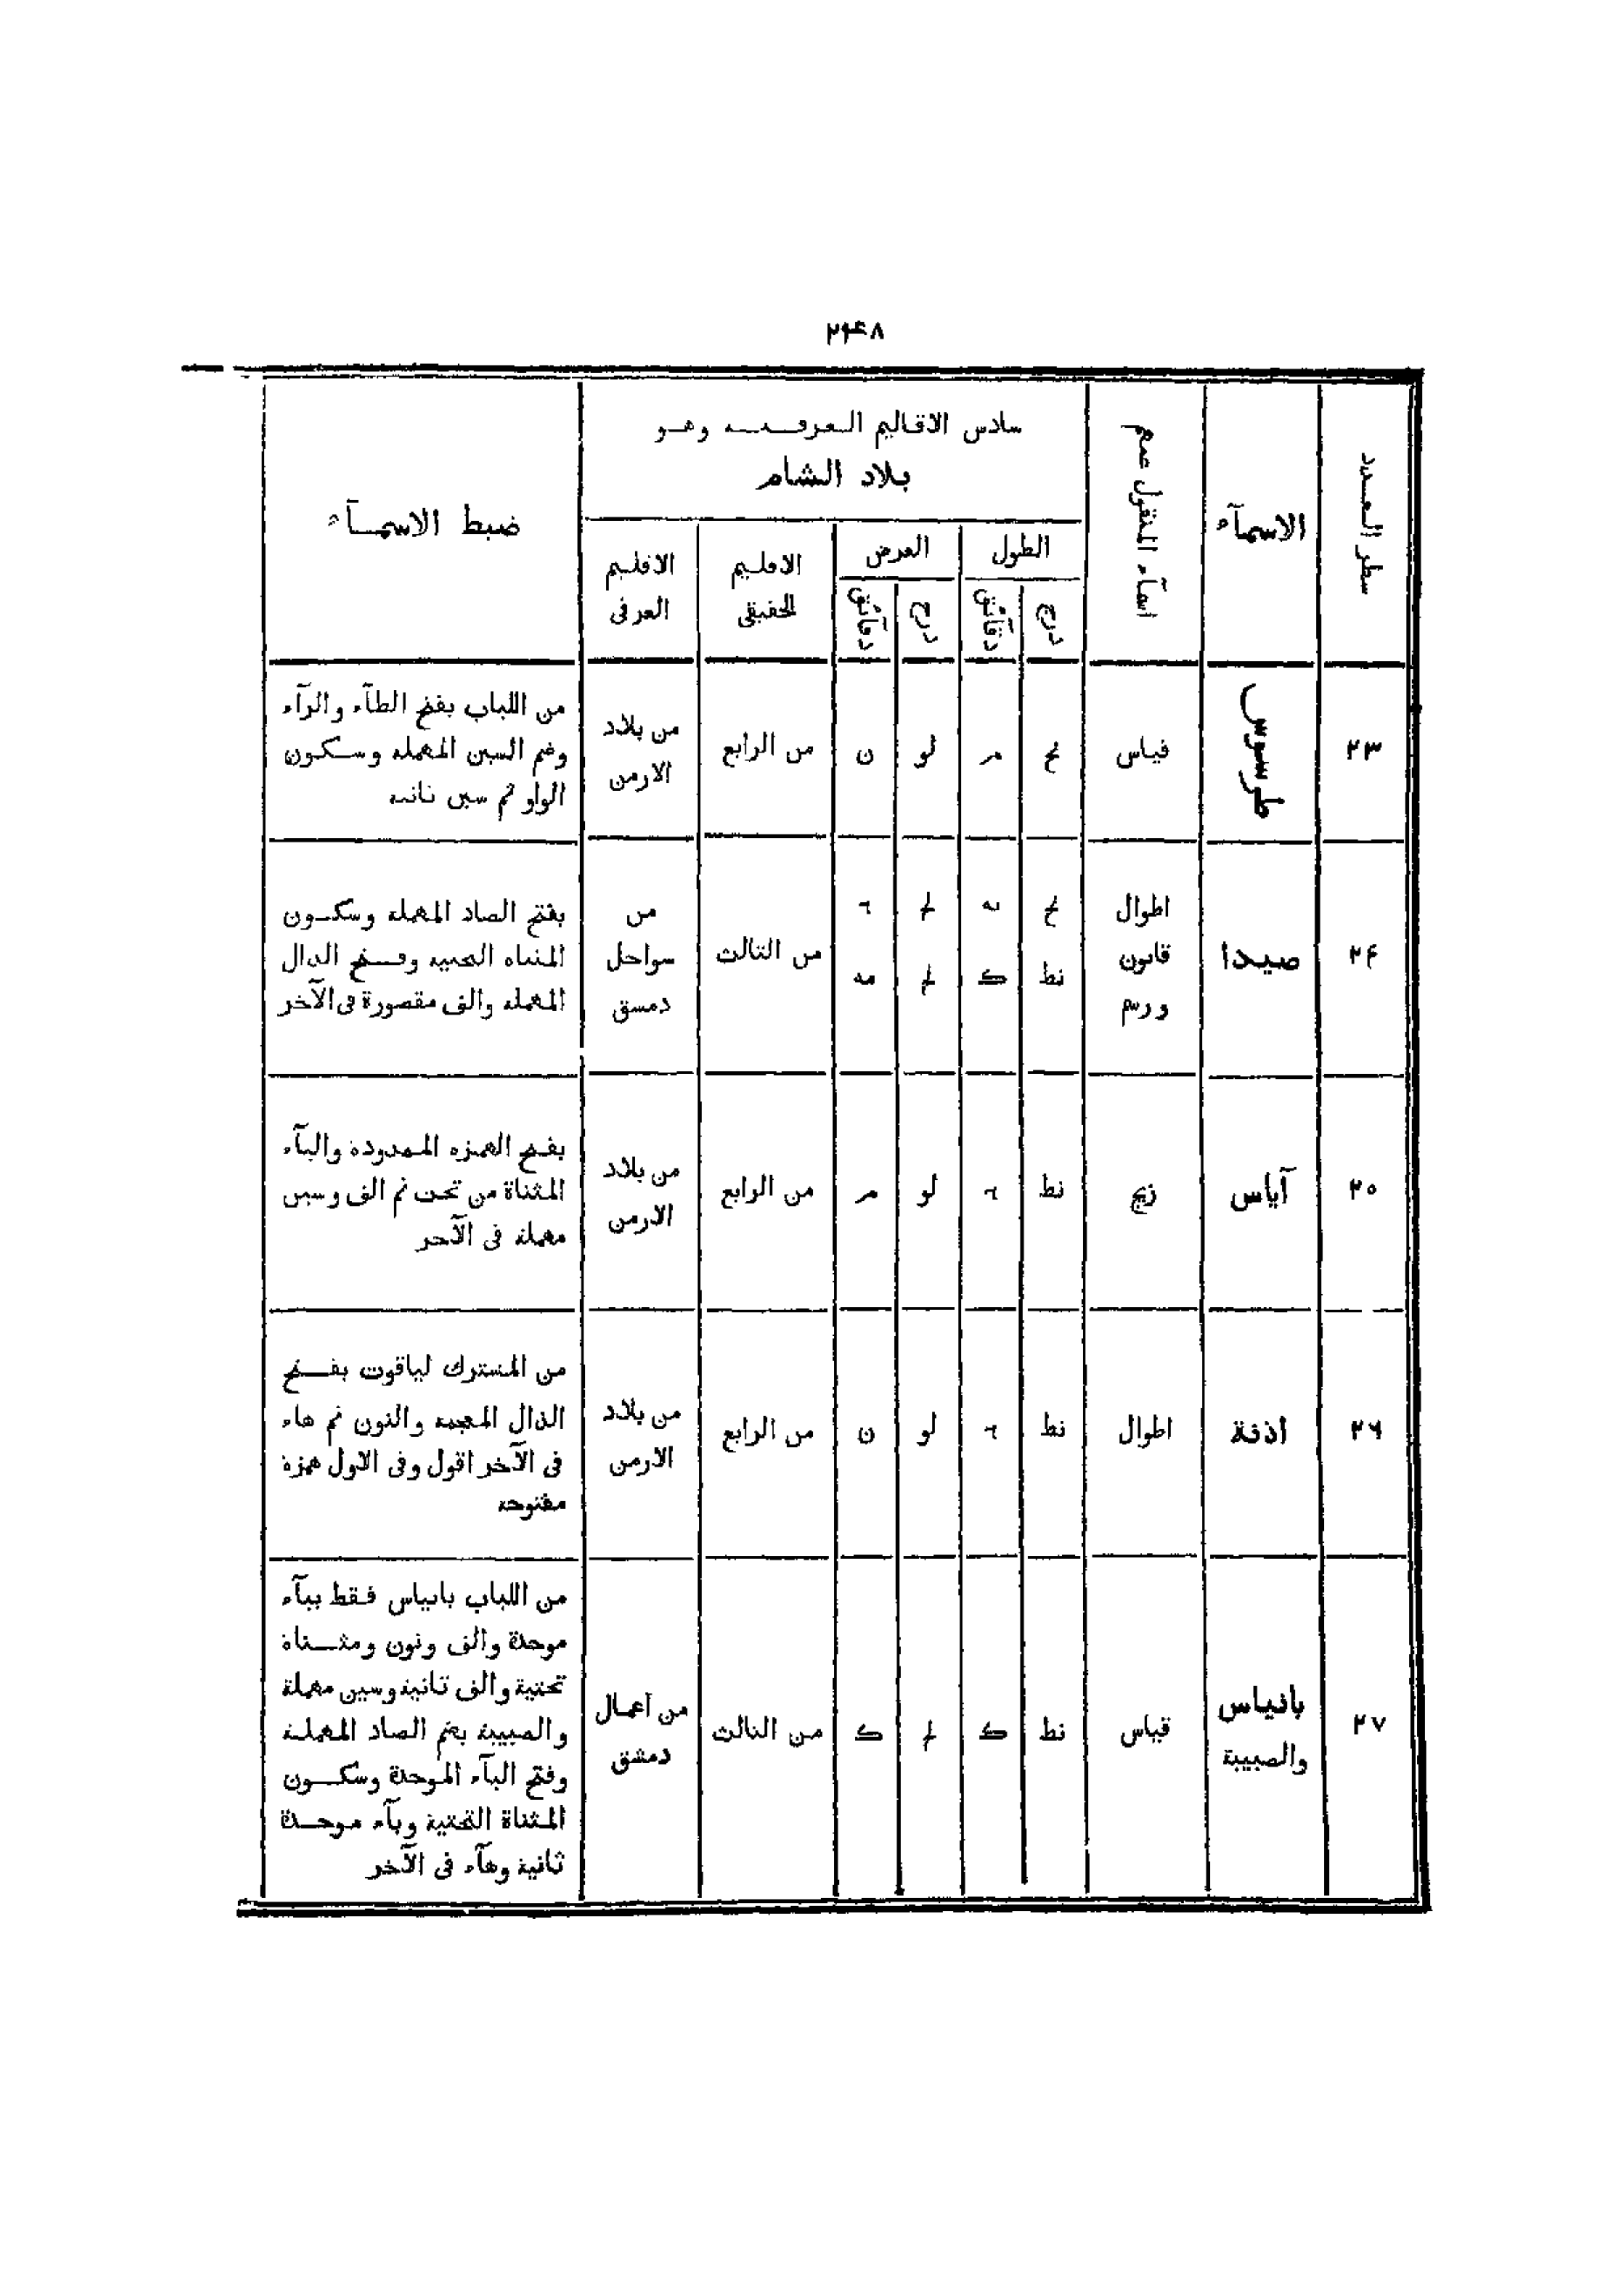 ٢٤٨
سطر العدد
الاسمآء
اسمآء المنقول عنهم
سادس الاقاليم العرفيه وهو
بلاد الشام
الطول
العرض
درج
دقائق
درج
دقائق
الاقليم
الحقيقى
الاقليم
العرفى
ضبط الاسمآء
٢٣
طرسوس
قياس
نح
م
لو
ن
من الرابع
من بلاد
الارمن
من اللباب بفتح الطآء والرآء
وضم السين المهملة وسكون
الواو ثم سين ثانيه
٢٤
صيدا
اطوال
قانون
ورسم
نح
نه
لح
٦
نط
ك
لح
مه
من الثالث
من
سواحل
دمسق
بفتح الصاد المهملة وسكون
المثناه التحتيه وفتح الدال
المهملة والف مقصورة فى الآخر
٢٥
آياس
زيج
نط
٦
لو
م
من الرابع
من بلاد
الارمن
بفتح الهمزه الممدوده واليآء
المثناة من تحت ثم الف وسين
مهملة فى الآخر
٢٦
اذنة
اطوال
نط
٦
لو
ن
من الرابع
من بلاد
الارمن
من المشترك لياقوت بفتح
الذال المعجمه والنون ثم هاء
فى الآخر اقول وفى الاول همزة
مفتوحة
٢٧
بانياس
والصبيبة
قياس
نط
ك
لح
ك
من الثالث
من اعمال
دمشق
من اللباب بانياس فقط ببآء
موحدة والف ونون ومثناة
تحتية والف ثانية وسين مهملة
والصبيبة بضم الصاد المهملة
وفتح البآء الموحدة وسكون
المثناة التحتية وبآء موحدة
ثانية وهآء فى الآخر